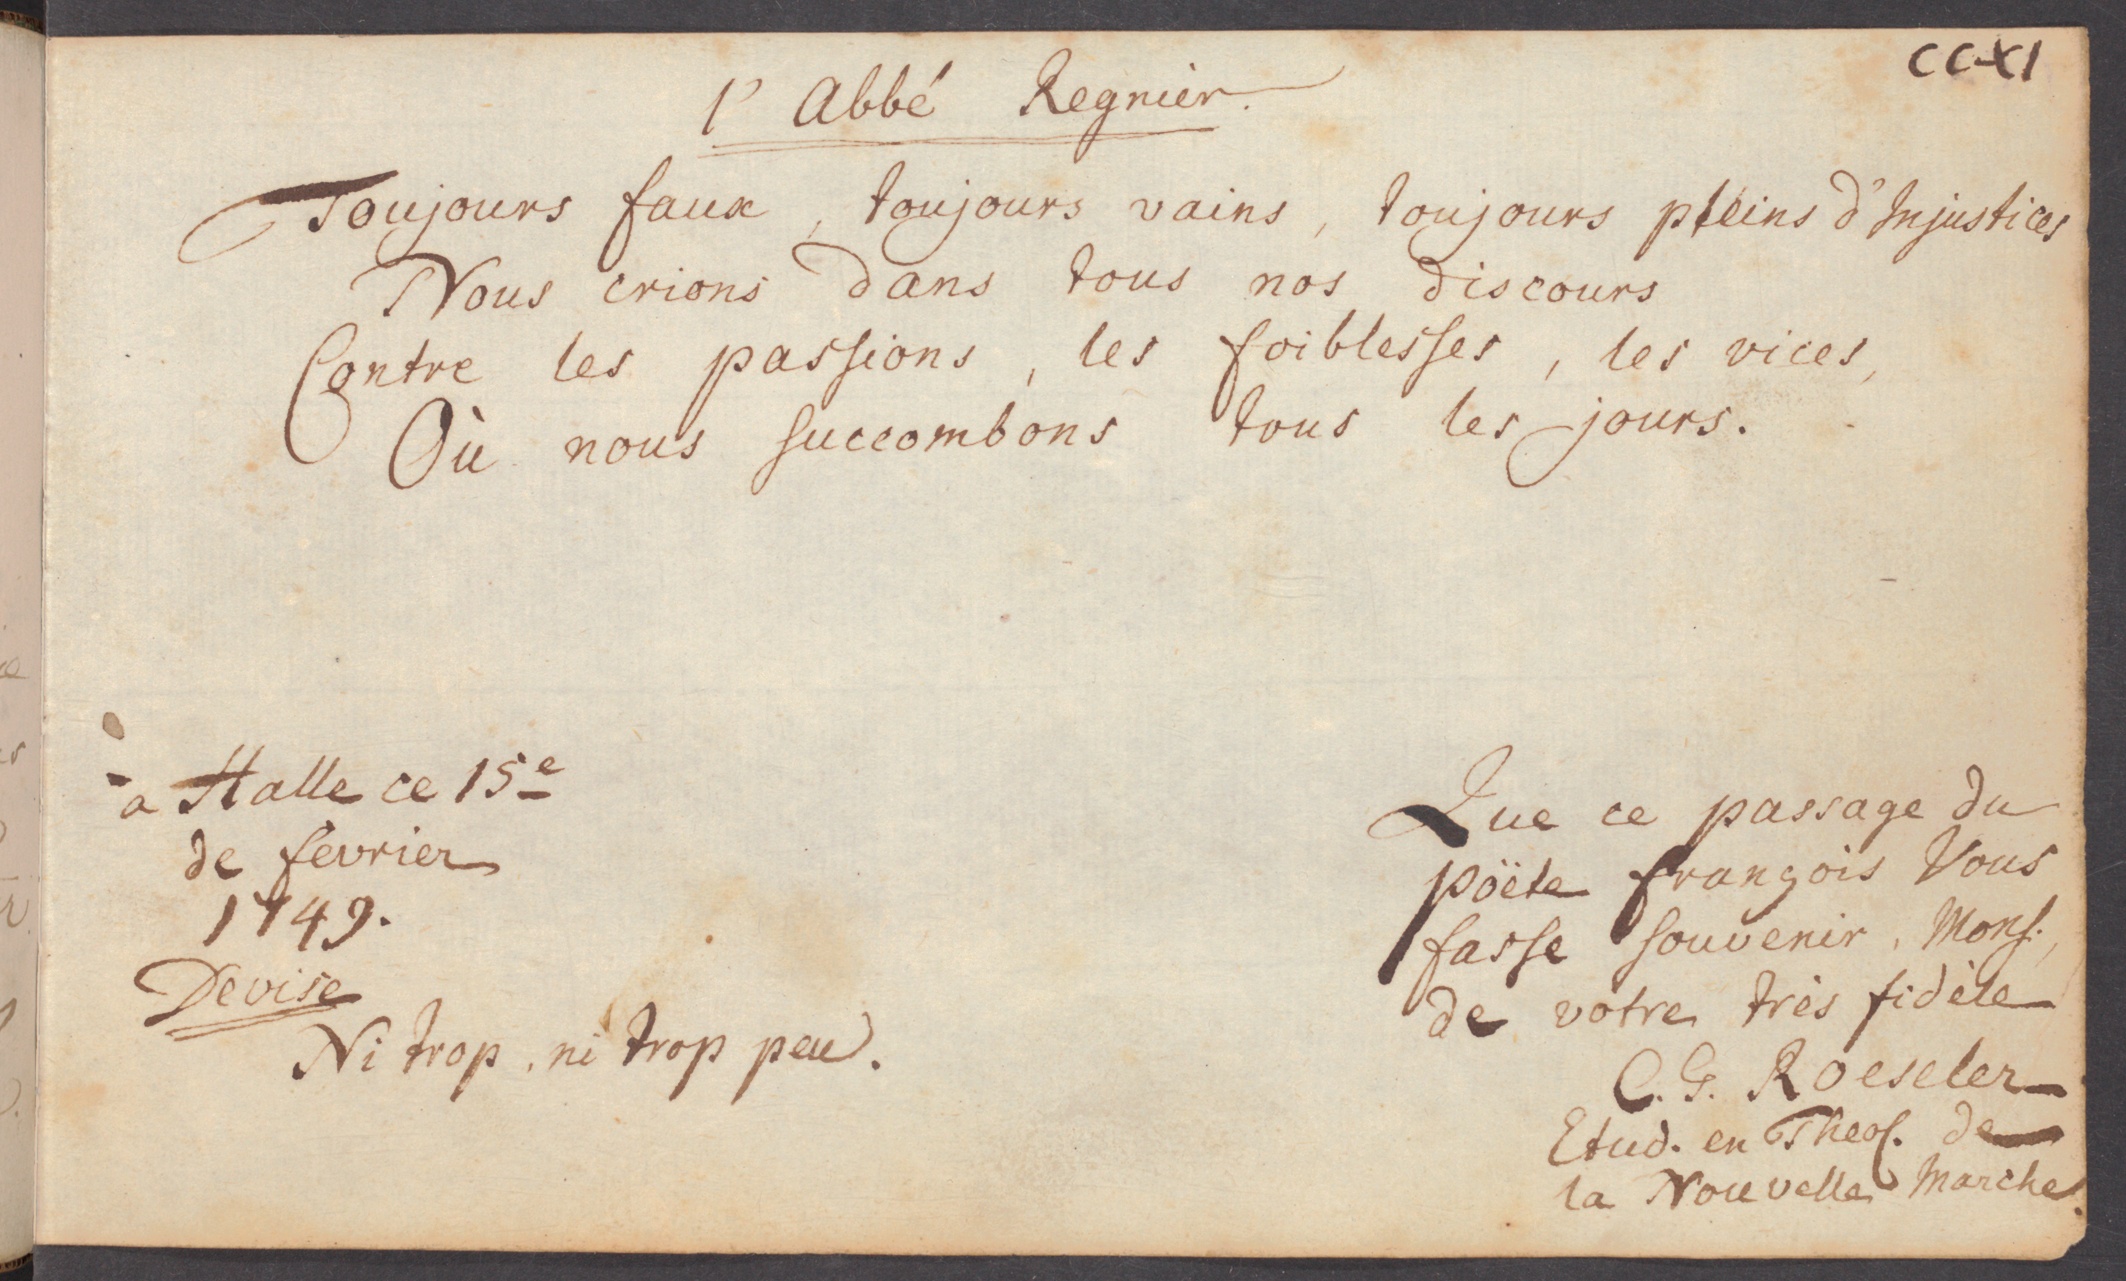 CCXI
l'Abbé Regnier.
Toujours faux, toujours vains, toujours pleins d'Injustices
Nous crions dans tous nos discours
Contre les passions, les foiblesses, les vices,
Où nous succombons tous les jours.
à Halle ce 15e
de fevrier
1749.
Devise
Ni trop, ni trop peu.
Que ce passage du
pöete françois Vous
fasse souvenir, Mons.,
de votre très fidèle
C. G. Roeseler
Etud. en Theol. de
la Nouvelle Marche.